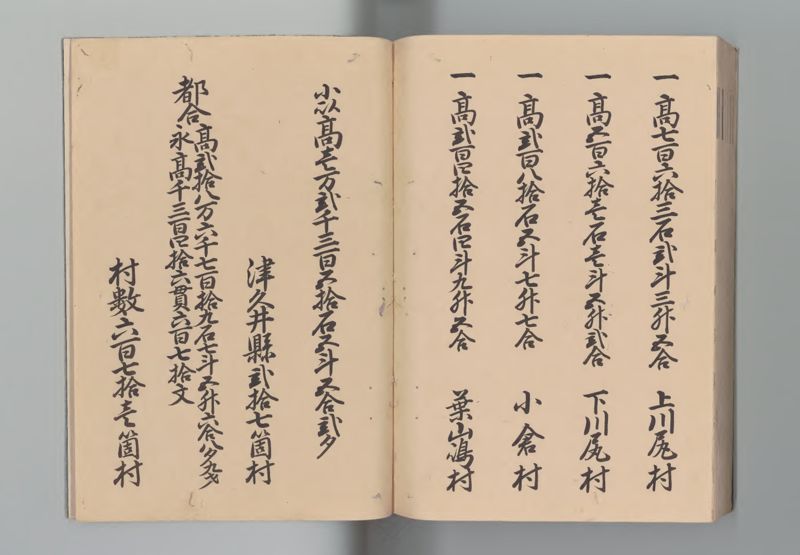 一高七百六拾三石弐斗三升五合 上川尻村
一高五百六拾壱石壱斗五升弐合 下川尻村
一高弐百八拾石五斗七升七合 小倉村
一高弐百四拾五石四斗九升五合 葉山嶋村
小以高壱万弐千三百五拾石五斗五合弐夕
津久井縣弐拾七箇村
都合高弐拾八万六千七百拾九石七斗五升六合八夕九才
永高千三百四拾六貫六百七拾文
村數六百七拾壱箇村